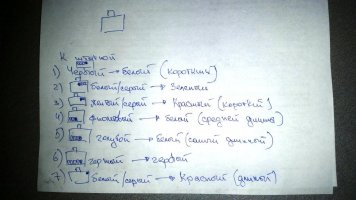 К штатной
1) Чёрный → белый (короткий)
2) белый/серый → зелёный
3) жёлтый/серый → Красный (короткий)
4) фиолетовый → белый (средней длины)
5) голубой → белый (самый длинный)
6) чёрный → чёрный
7) белый/серый → Красный (длинный)